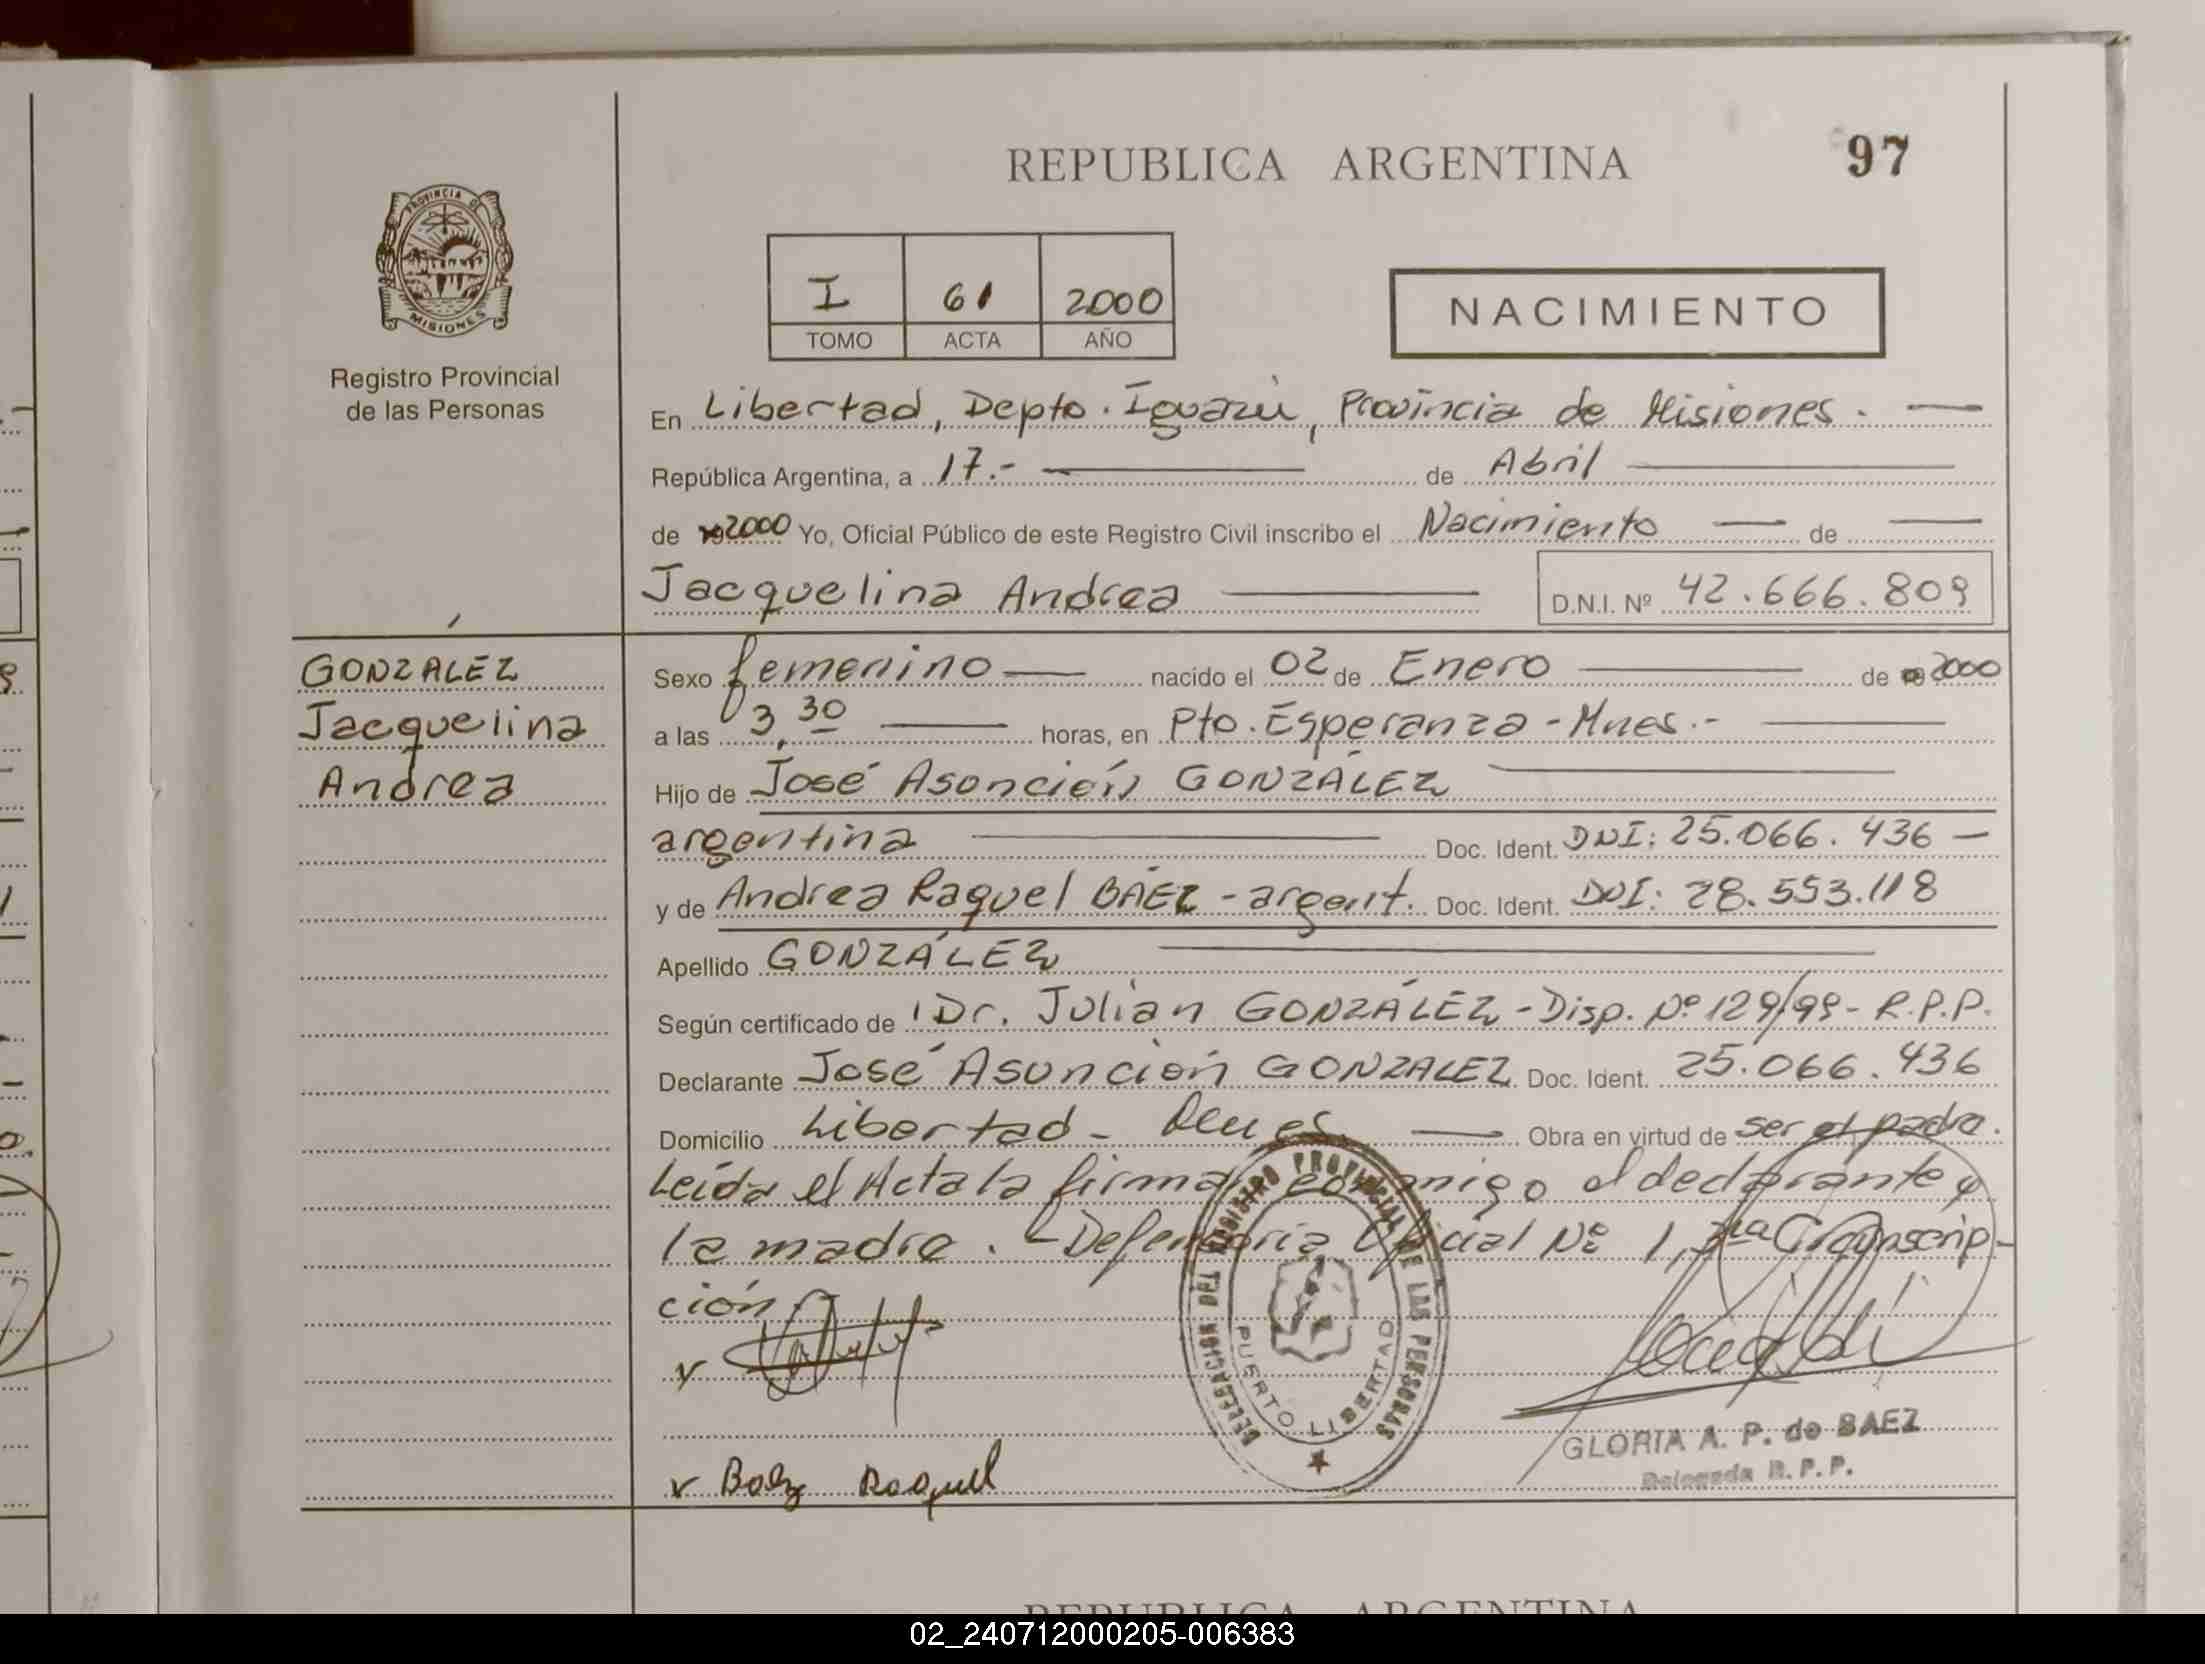 REPUBLICA ARGENTINA
97
PROVINCIA DE
MISIONES
Registro Provincial
de las Personas
I 61 2000
TOMO ACTA AÑO
NACIMIENTO
En Libertad, Depto. Iguazú, Provincia de Misiones.
República Argentina, a 17.- de Abril
de 2000 Yo, Oficial Público de este Registro Civil inscribo el Nacimiento de
Jacquelina Andrea D.N.I. Nº 42.666.809
GONZÁLEZ
Jacquelina
Andrea
Sexo femenino nacido el 02 de Enero de 2000
a las 3,30 horas, en Pto. Esperanza - Mnes.-
Hijo de José Asonción GONZÁLEZ
argentina Doc. Ident. DNI: 25.066.436
y de Andrea Raquel BÁEZ - argent. Doc. Ident. DNI: 28.553.118
Apellido GONZÁLEZ
Según certificado de Dr. Julián GONZÁLEZ - Disp. Nº 129/99 - R.P.P.
Declarante José Asunción GONZALEZ Doc. Ident. 25.066.436
Domicilio Libertad - Obra en virtud de ser el padre.
Leída el Acta la firman conmigo el declarante y
la madre. - Defensoría Oficial Nº 1, Circunscrip-
ción
DELEGACION DEL REGISTRO PROVINCIAL DE LAS PERSONAS
PUERTO LIBERTAD
GLORIA A. P. de BAEZ
Delegada R. P. P.
v Baez Raquel
REPUBLICA ARGENTINA
02_240712000205-006383